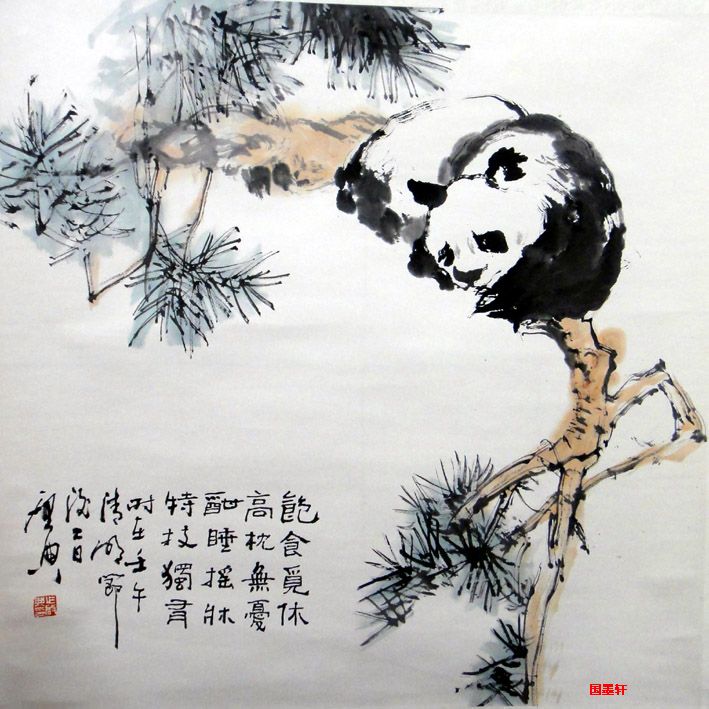 飽食覓休
高枕無憂
酣睡摇牀
特技獨有
时在壬午
清明節
国墨轩